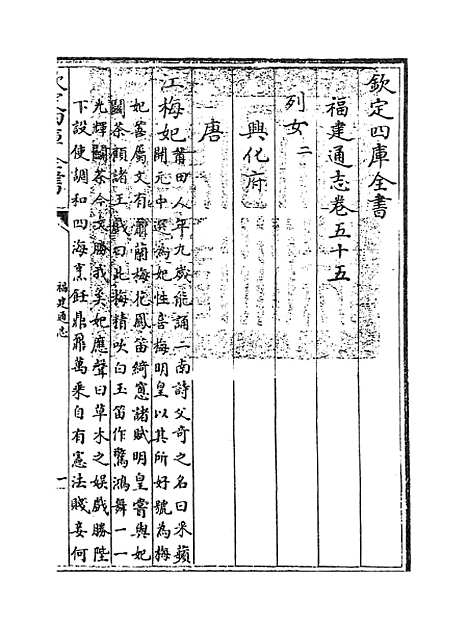 欽定四庫全書
福建通志卷五十五
列女二
興化府
唐
江梅妃莆田人年九歲能誦二南詩父奇之名曰采蘋
開元中選為妃性喜梅明皇以其所好號為梅
妃善屬文有蕭蘭梅花鳳笛綺窻諸賦明皇嘗與妃
鬭茶顧諸王戲曰此梅精吹白玉笛作驚鴻舞一一
光輝鬭茶今又勝我矣妃應聲曰草木之娱戲勝陛
下設使調和四海烹飪鼎鼐萬乘自有憲法賤妾何
福建通志
一